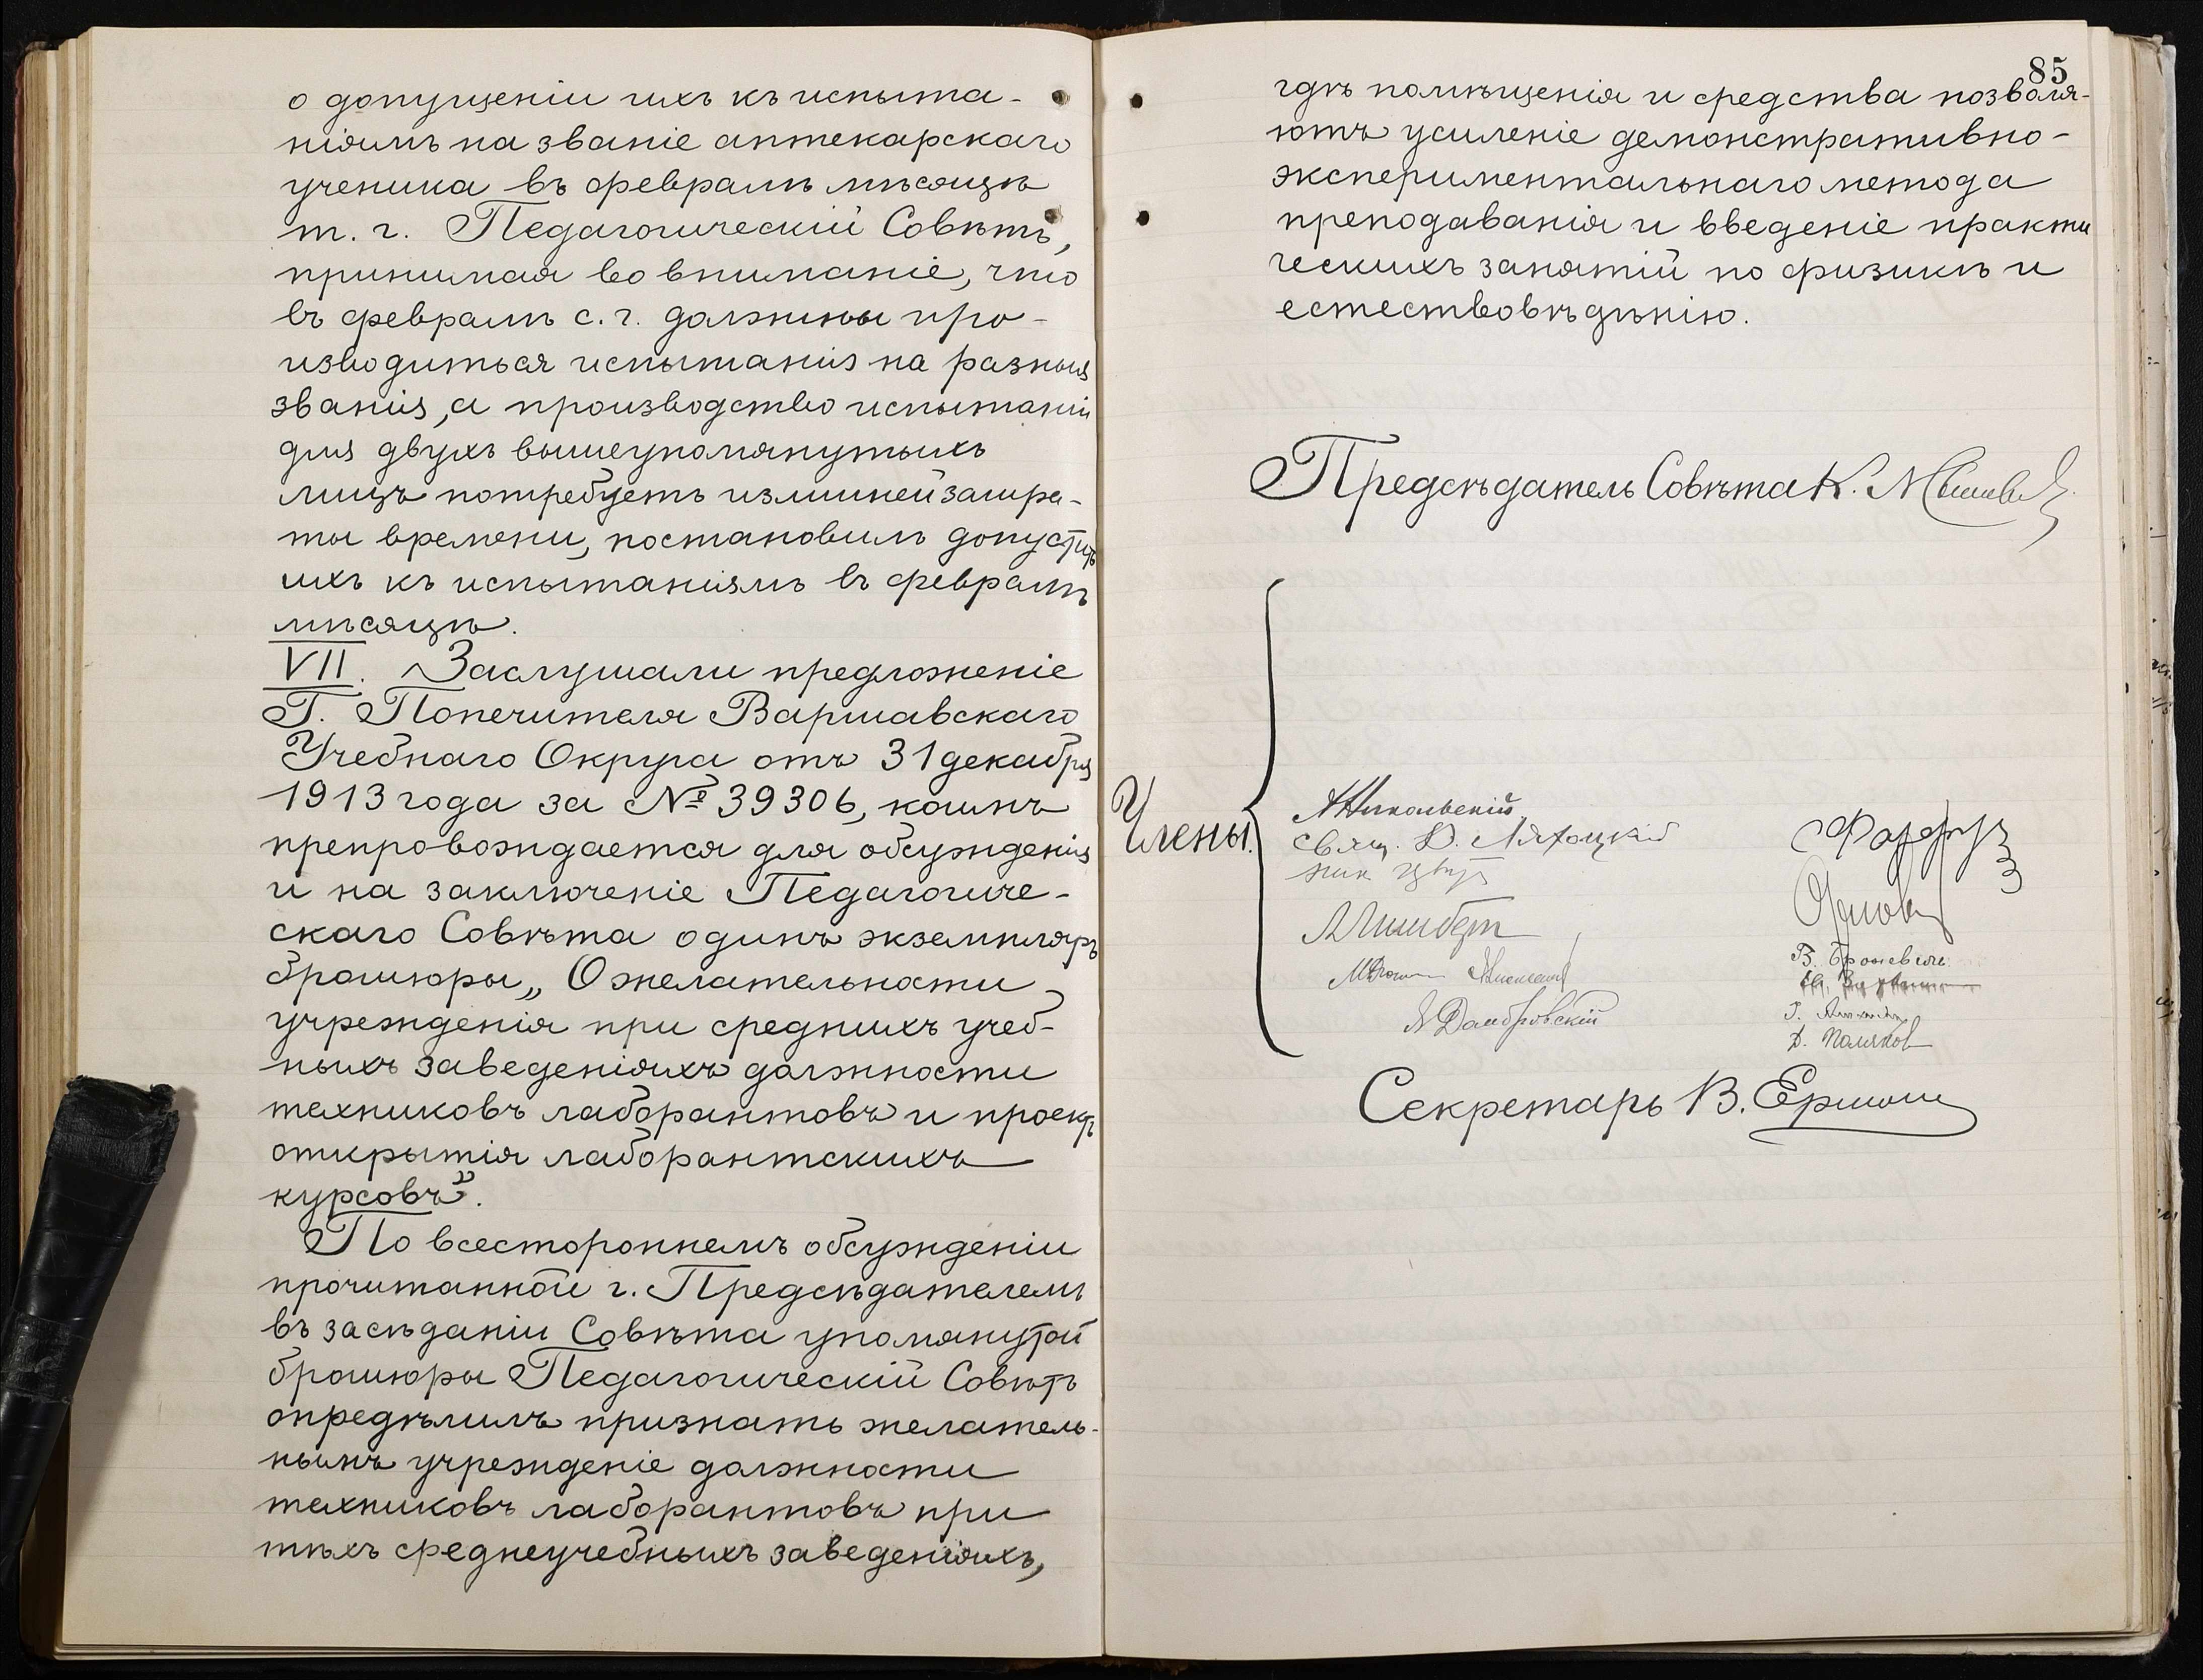 о допущеніи ихъ къ испыта-
ніямъ на званіе аптекарскаго
ученика въ февралѣ мѣсяцѣ
т. г. Педагогическій Совѣтъ,
принимая во вниманіе, что
въ февралѣ с. г. должны про-
изводиться испытанія на разныя
званія, а производство испытаній
для двухъ вышеупомянутыхъ
лицъ потребуетъ излишней затра-
ты времени, постановилъ допустить
ихъ къ испытаніямъ въ февралѣ
мѣсяцѣ.
VII. Заслушали предложеніе
Г. Попечителя Варшавскаго
Учебнаго Округа отъ 31 декабря
1913 года за № 39306, коимъ
препровождается для обсужденія
и на заключеніе Педагогиче-
скаго Совѣта одинъ экземпляръ
брошюры „О желательности
учрежденія при среднихъ учеб-
ныхъ заведеніяхъ должности
техниковъ лаборантовъ и проектъ
открытія лаборантскихъ
курсовъ".
По всестороннемъ обсужденіи
прочитанной г. Предсѣдателемъ
въ засѣданіи Совѣта упомянутой
брошюры Педагогическій Совѣтъ
опредѣлилъ признать желатель-
нымъ учрежденіе должности
техниковъ лаборантовъ при
тѣхъ среднеучебныхъ заведеніяхъ,
85
гдѣ помѣщенія и средства позволя-
ютъ усиленіе демонстративно-
экспериментальнаго метода
преподаванія и введеніе практи
ческихъ занятій по физикѣ и
естествовѣдѣнію.
Предсѣдатель Совѣта К.
Члены.
А Никольскій
свящ. Д. Ляхоцкій
А Домбровскій
Д. Поляков
Секретарь В.